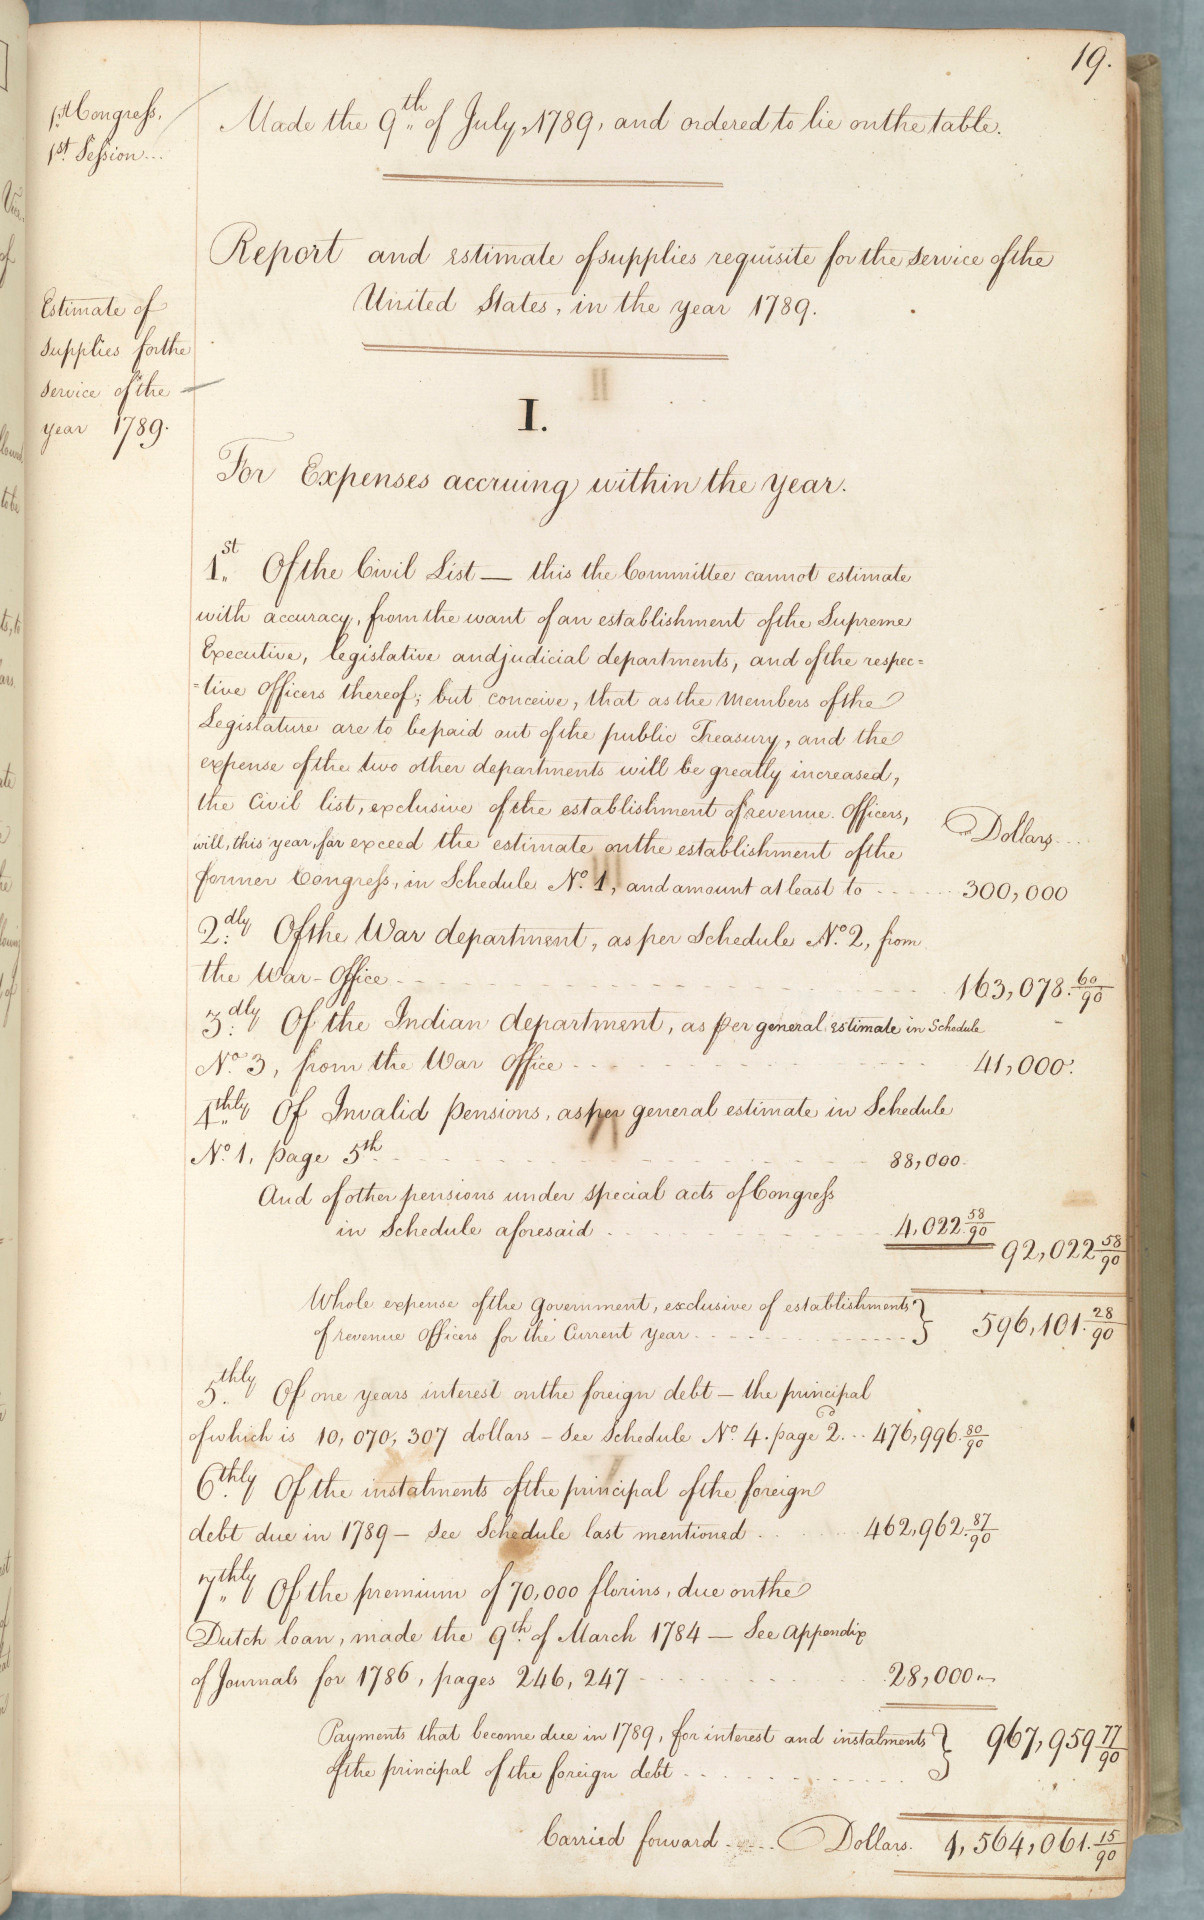 19.
1st Congress.
1st Session...
Made the 9th of July, 1789, and ordered to lie on the table.
Report and estimate of supplies requisite for the service of the
United States, in the year 1789.
Estimate of
supplies for the
service of the
year 1789.
I.
For Expenses accruing within the year.
1st Of the Civil List — this the Committee cannot estimate
with accuracy, from the want of an establishment of the Supreme
Executive, legislative and judicial departments, and of the respec=
=tive officers thereof; but conceive, that as the members of the
Legislature are to be paid out of the public Treasury, and the
expense of the two other departments will be greatly increased,
the Civil list, exclusive of the establishment of revenue officers,
Dollars...
will, this year, far exceed the estimate on the establishment of the
former Congress, in Schedule No. 1, and amount at least to 300,000
2dly Of the War department, as per Schedule No. 2, from
the War-Office 163,078.60/90
3dly Of the Indian department, as per general estimate in Schedule
No. 3, from the War Office 41,000.
4thly Of Invalid pensions, as per general estimate in Schedule
No. 1, page 5th 88,000.
And of other pensions under special acts of Congress
in Schedule aforesaid 4,022.58/90
92,022 58/90
Whole expense of the Government, exclusive of establishments
of revenue officers for the current year 596,101.28/90
5thly Of one years interest on the foreign debt — the principal
of which is 10,070,307 dollars — see Schedule No. 4. page 2... 476,996.80/90
6thly Of the instalments of the principal of the foreign
debt due in 1789 — see Schedule last mentioned 462,962.87/90
7thly Of the premium of 70,000 florins, due on the
Dutch loan, made the 9th of March 1784 — See appendix
of Journals for 1786, pages 246, 247 28,000
Payments that become due in 1789, for interest and instalments 967,959 77/90
of the principal of the foreign debt
Carried forward Dollars. 1,564,061.15/90